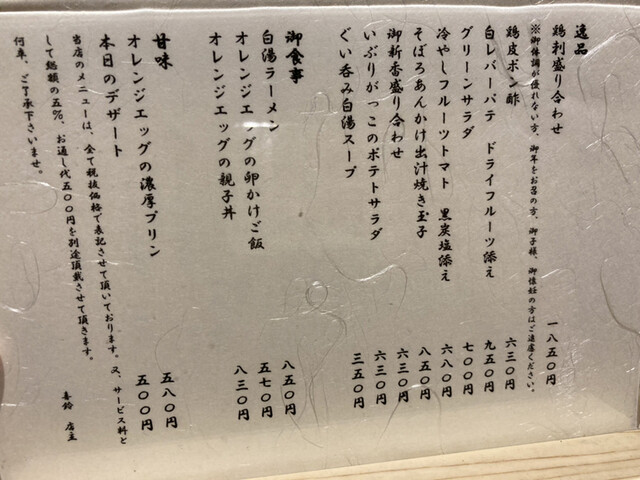 逸品
鶏刺盛り合わせ 一八五〇円
※御体調が優れない方、御年をお召の方、御子様、御懐妊の方はご遠慮ください。
鶏皮ポン酢 六三〇円
白レバーパテ ドライフルーツ添え 九五〇円
グリーンサラダ 七〇〇円
冷やしフルーツトマト 黒炭塩添え 六八〇円
そぼろあんかけ出汁焼き玉子 八五〇円
御新香盛り合わせ 六三〇円
いぶりがっこのポテトサラダ 六三〇円
ぐい呑み白湯スープ 三五〇円
御食事
白湯ラーメン 八五〇円
オレンジエッグの卵かけご飯 五七〇円
オレンジエッグの親子丼 八三〇円
甘味
オレンジエッグの濃厚プリン 五八〇円
本日のデザート 五〇〇円
当店のメニューは、全て税抜価格で表記させて頂いております。又、サービス料と
して総額の五%、お通し代五〇〇円を別途頂戴させて頂きます。
何卒、ご了承下さいませ。
喜鈴 店主